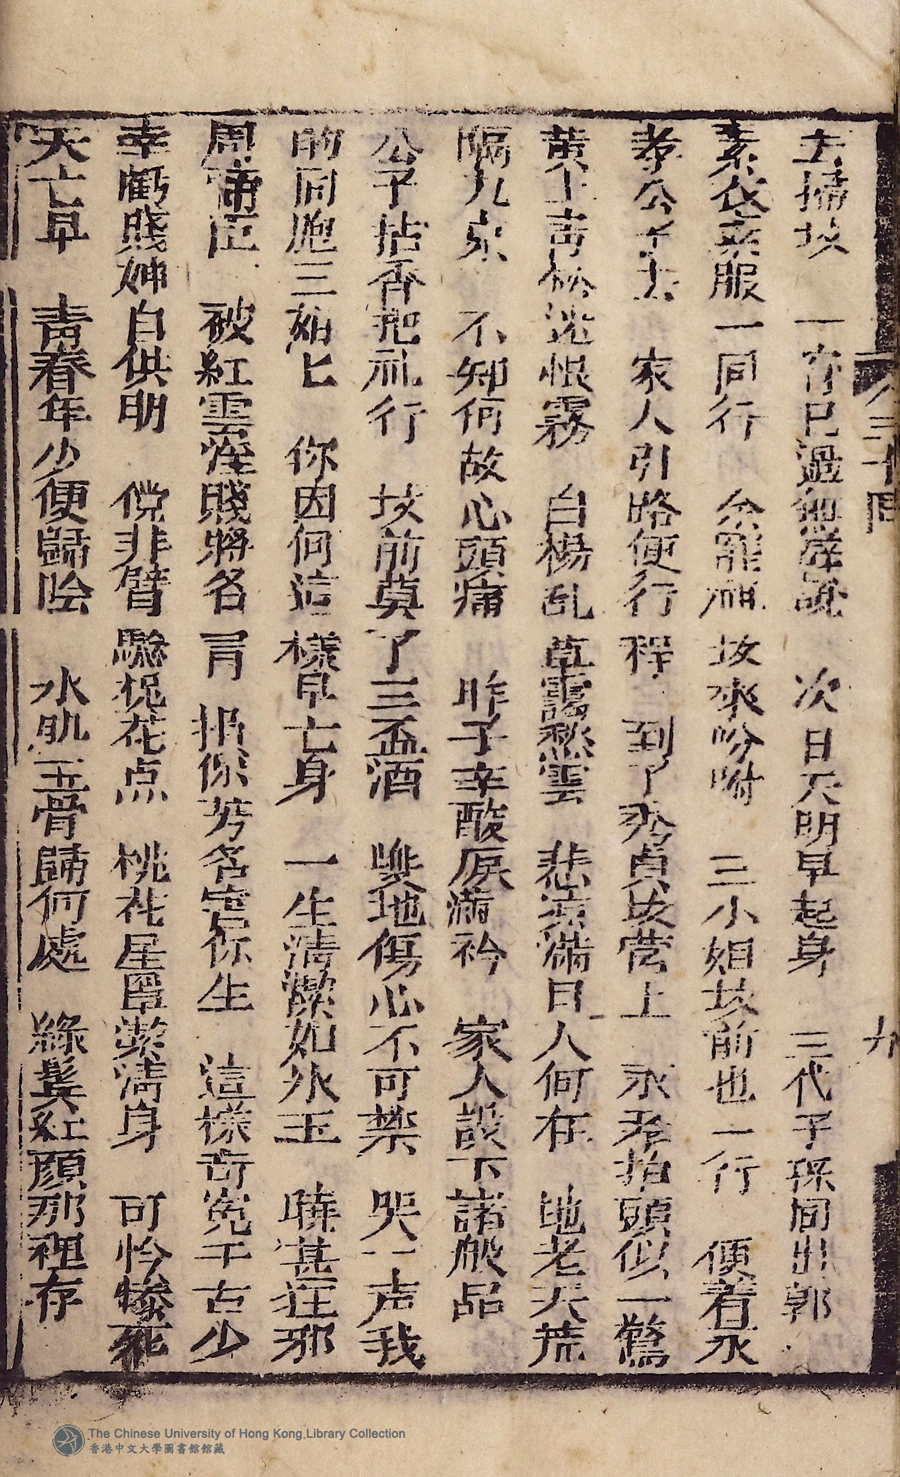 去掃坟 一宵已過無辞說 次日天明早起身 三代子孫同出郭
素衣素服一同行 余罷祖坟來吩咐 三小姐坟前也一行 便着永
孝公子去 家人引路便行程 到了秀貞坟营上 永孝抬頭似一驚
黄土青松迷恨霧 白楊乱草靄愁雲 悲哀满日人何在 地老天荒
隔九京 不知何故心頭痛 昨子辛酸戾满衿 家人設下諸般品
公子拈香把礼行 坟前奠了三盃酒 与地傷心不可禁 哭一声我
的同胞三姐匕 你因何這樣早亡身 一生清潔如氷玉 時甚狂邪
周痛臣 被紅雲淫賤將名冐 損你芳名害你生 這樣奇冤千古少
幸虧賤婢自供明 倘非臂驗梅花点 桃花星墨漿清身 可怜慘死
天亡早 青春年少便歸陰 水肌玉骨歸何處 綠鬂紅顔那裡存
三十囬
九
The Chinese University of Hong Kong Library Collection
香港中文大學圖書館館藏